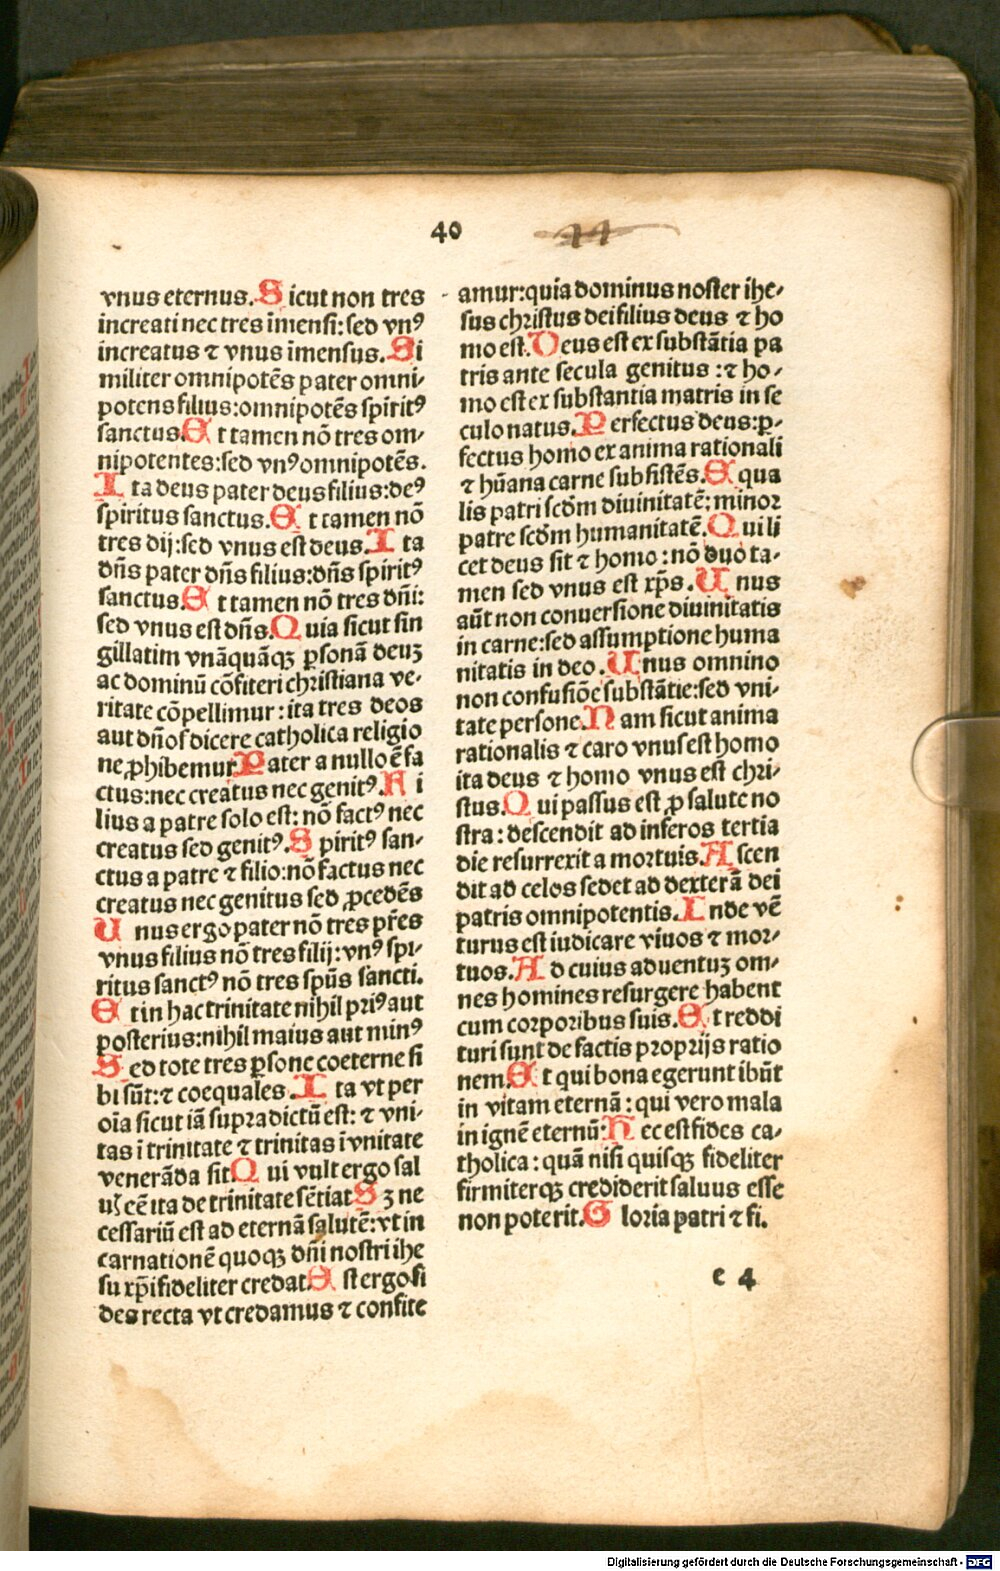 40
vnus eternus. Sicut non tres
increati nec tres īmensi: sed vnꝰ
increatus ⁊ vnus īmensus. Si
militer omnipotēs pater omni⸗
potens filius: omnipotēs spiritꝰ
sanctus. Et tamen nō tres om⸗
nipotentes: sed vnꝰ omnipotēs.
Ita deus pater deus filius: deꝰ
spiritus sanctus. Et tamen nō
tres dij: sed vnus est deus. Ita
dn̄s pater dn̄s filius: dn̄s spiritꝰ
sanctus. Et tamen nō tres dn̄i:
sed vnus est dn̄s. Quia sicut sin
gillatim vnāquāqꝫ ꝑsonā deuꝫ
ac dominū cōfiteri christiana ve⸗
ritate cōpellimur: ita tres deos
aut dn̄os dicere catholica religio
ne ꝓhibemur. Pater a nullo ē fa
ctus: nec creatus nec genitꝰ. Fi
lius a patre solo est: nō factꝰ nec
creatus sed genitꝰ. Spiritꝰ san⸗
ctus a patre ⁊ filio: nō factus nec
creatus nec genitus sed ꝓcedēs
Unus ergo pater nō tres pr̄es
vnus filius nō tres filij: vnꝰ spi⸗
ritus sanctꝰ nō tres spūs sancti.
Et in hac trinitate nihil priꝰ aut
posterius: nihil maius aut minꝰ
Sed tote tres ꝑsone coeterne si
bi sūt: ⁊ coequales. Ita vt per
oīa sicut iā supra dictū est: ⁊ vni⸗
tas ī trinitate ⁊ trinitas ī vnitate
venerāda sit. Qui vult ergo sal
uꝰ cē ita de trinitate sētiat. Sꝫ ne
cessariū est ad eternā salutē: vt in
carnationē quoqꝫ dn̄i nostri ihe
su xp̄i fideliter credat. Est ergo fi
des recta vt credamus ⁊ confite
amur: quia dominus noster ihe⸗
sus christus dei filius deus ⁊ ho
mo est. Deus est ex substātia pa
tris ante secula genitus: ⁊ ho⸗
mo est ex substantia matris in se
culo natus. Perfectus deus: ꝑ⸗
fectus homo ex anima rationali
⁊ hūana carne subsistēs. Equa
lis patri scd̄m diuinitatē: minor
patre scd̄m humanitatē. Qui li
cet deus sit ⁊ homo: nō duo ta⸗
men sed vnus est xp̄s. Unus
aūt non conuersione diuinitatis
in carne: sed assumptione huma
nitatis in deo. Unus omnino
non confusiōe substātie: sed vni⸗
tate persone. Nam sicut anima
rationalis ⁊ caro vnus est homo
ita deus ⁊ homo vnus est chri⸗
stus. Qui passus est ꝓ salute no
stra: descendit ad inferos tertia
die resurrexit a mortuis. Ascen
dit ad celos sedet ad dexterā dei
patris omnipotentis. Inde vē
turus est iudicare viuos ⁊ mor⸗
tuos. Ad cuius aduentuꝫ om⸗
nes homines resurgere habent
cum corporibus suis. Et reddi
turi sunt de factis proprijs ratio
nem. Et qui bona egerunt ibūt
in vitam eternā: qui vero mala
in ignē eternū: Hec est fides ca⸗
tholica: quā nisi quisqꝫ fideliter
firmiterqꝫ crediderit saluus esse
non poterit. Gloria patri ⁊ fi.
e 4
Digitalisierung gefördert durch die Deutsche Forschungsgemeinschaft - DFG